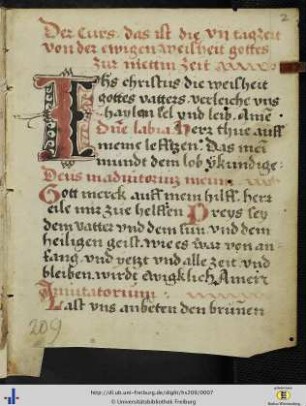 2
Der Curs. das ist die vii tagzeit
von der ewigen weisheit gottes
zur mettin zeit
Jhs christus die weisheit
gottes vatters. verleiche vns
hayl on sel vnd leib. Amē
Dñe labia. Herz thue auff
meine lefftzen. Das mei
mundt dem lob ṽkundige:
Deus in adiutoriū meum.
Gott merck auff mein hilff. herr
eile mir zue helffen Preys sey
dem vatter vnd dem sun. vnd dem
heiligen geist. wie es war von an-
fang. vnd yetzt vnd alle zeit. vnd
bleiben wirdt ewigklich Amen
Inuitatorium:
Last vns anbeten den brunnen
209
http://dl.ub.uni-freiburg.de/diglit/hs209/0007
© Universitätsbibliothek Freiburg